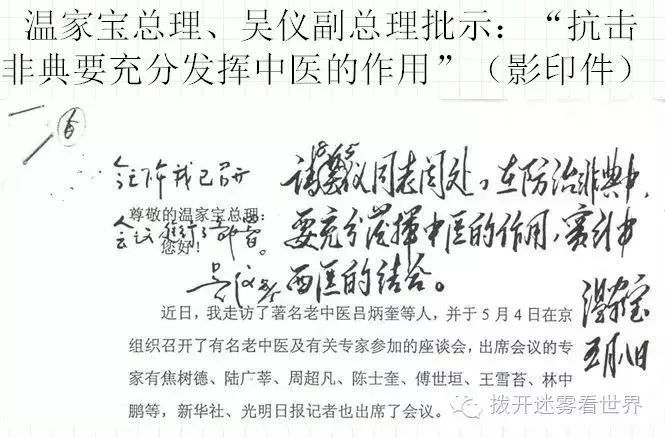 温家宝总理、吴仪副总理批示：“抗击
非典要充分发挥中医的作用”（影印件）
6
今上午我已召开
会议进行了部署。
吴仪
请吴仪同志阅处。在防治非典中，
要充分发挥中医的作用，实行中
西医的结合。
温家宝
五月八日
尊敬的温家宝总理：
您好！
近日，我走访了著名老中医吕炳奎等人，并于5月4日在京
组织召开了有名老中医及有关专家参加的座谈会，出席会议的专
家有焦树德、陆广莘、周超凡、陈士奎、傅世垣、王雪苔、林中
鹏等，新华社、光明日报记者也出席了会议。
拨开迷雾看世界